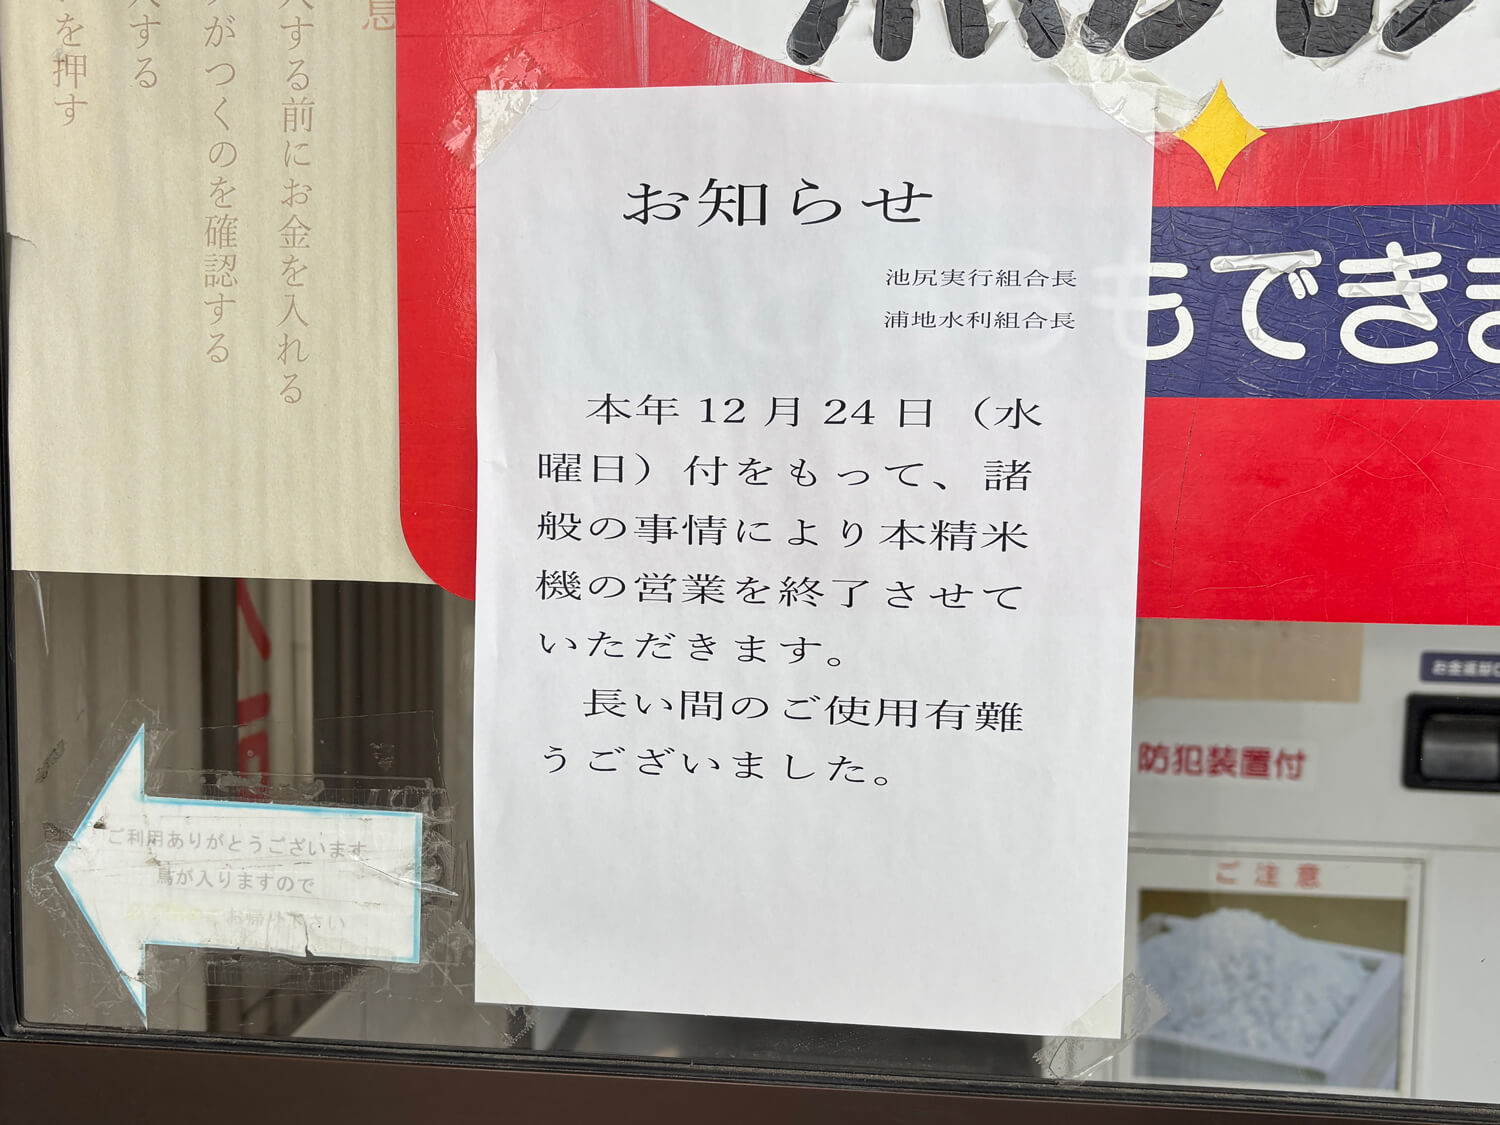 する前にお金を入れる
がつくのを確認する
する
を押す
お知らせ
池尻実行組合長
浦地水利組合長
本年12月24日（水
曜日）付をもって、諸
般の事情により本精米
機の営業を終了させて
いただきます。
長い間のご使用有難
うございました。
もできま
防犯装置付
ご注意
ご利用ありがとうございます
鳥が入りますので